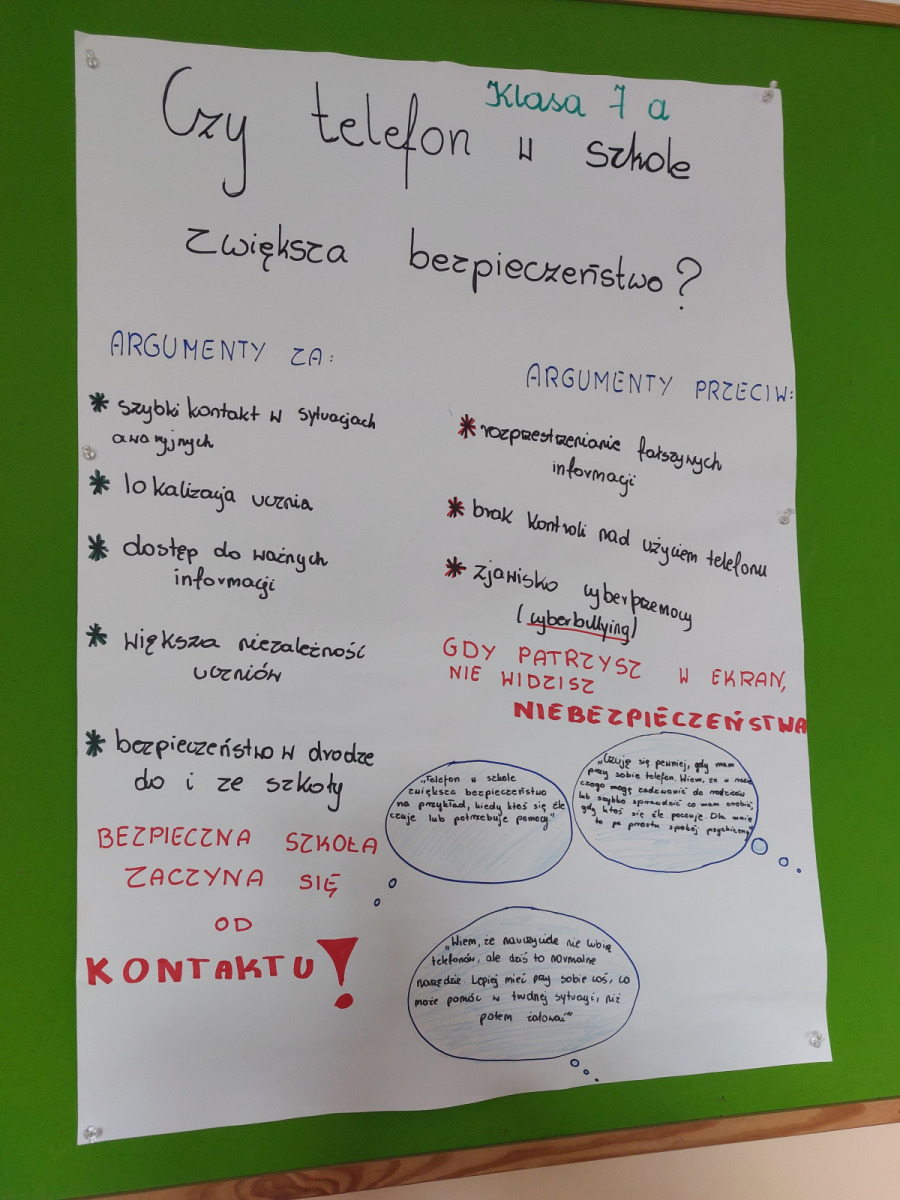 Klasa 7 a
Czy telefon w szkole
zwiększa bezpieczeństwo?
ARGUMENTY ZA:
* szybki kontakt w sytuacjach
awaryjnych
* lokalizacja ucznia
* dostęp do ważnych
informacji
* większa niezależność
uczniów
* bezpieczeństwo w drodze
do i ze szkoły
BEZPIECZNA SZKOŁA
ZACZYNA SIĘ
OD
KONTAKTU!
ARGUMENTY PRZECIW:
* rozprestrzenianie fałszywych
informacji
* brak kontroli nad użyciem telefonu
* zjawisko cyberprzemocy
(cyberbullying)
GDY PATRZYSZ W EKRAN,
NIE WIDZISZ
NIEBEZPIECZEŃSTWA
„Telefon w szkole
zwiększa bezpieczeństwo
na przykład, kiedy ktoś się źle
czuje lub potrzebuje pomocy"
„Czuję się pewniej, gdy mam
przy sobie telefon. Wiem, że w razie
czego mogę zadzwonić do rodziców
lub szybko sprawdzić co mam zrobić,
gdy ktoś się źle poczuje. Dla mnie
to po prostu spokój psychiczny"
„Wiem, że nauczyciele nie lubią
telefonów, ale dziś to normalne
narzędzie. Lepiej mieć przy sobie coś, co
może pomóc w trudnej sytuacji, niż
potem żałować"